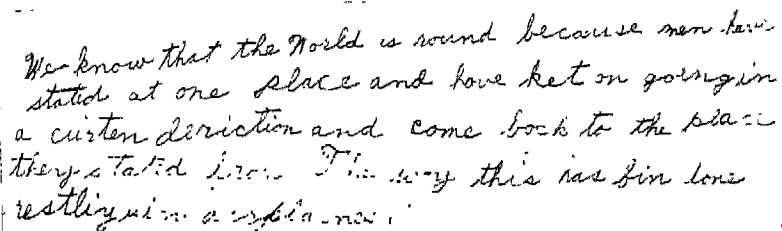 We know that the World is round because men have
stated at one place and hove ket on going in
a cirten deriction and come bock to the place
they stated from The way this has bin done
restliy